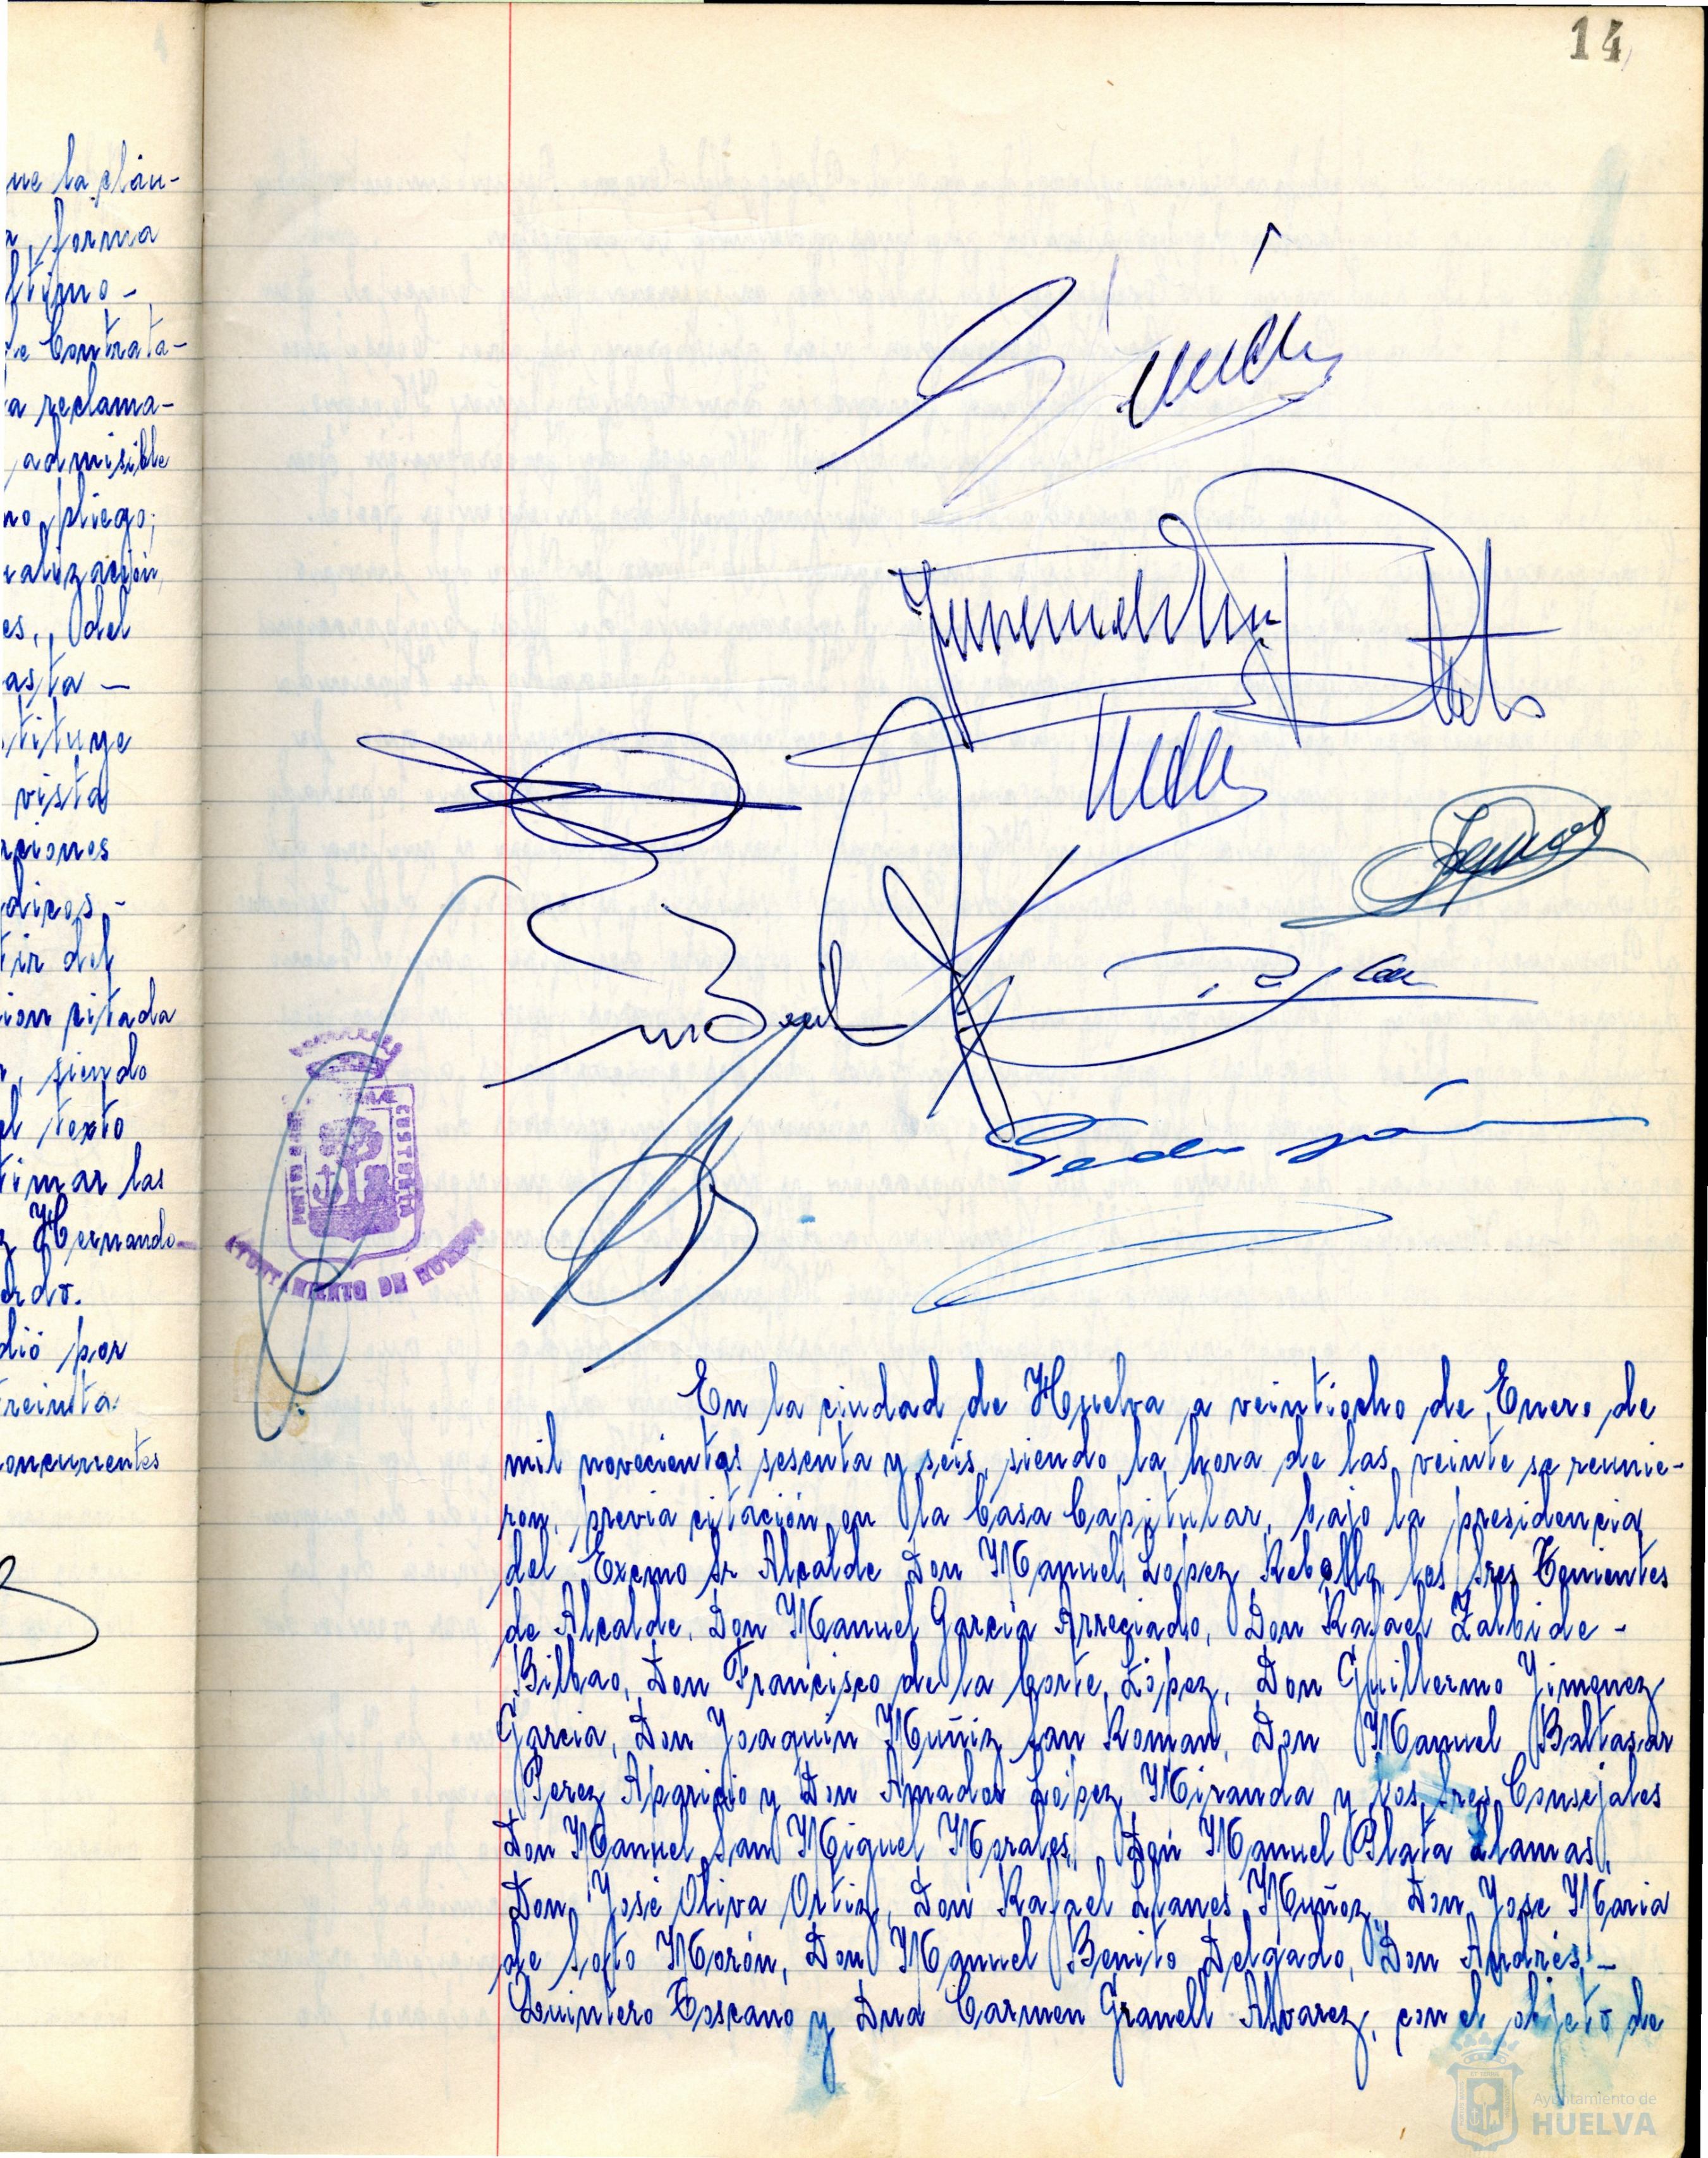 14
ue la cláu-
, forma
ltimo -
e Contrata-
a reclama-
, admisible
no pliego;
alización,
es, del
asta -
stituye
vista
rciones
dicos -
tir del
ion citada
, siendo
el texto
timar las
Hernando-
erdo.
dió por
treinta
oncurrentes
CUSTODIA
AYUNTAMIENTO DE HUELVA
En la ciudad de Huelva a veintiocho de Enero de
mil novecientos sesenta y seis, siendo la hora de las veinte se reunie-
ron, previa citación en la Casa Capitular, bajo la presidencia
del Excmo Sr Alcalde Don Manuel López Rebollo, los Sres Tenientes
de Alcalde, Don Manuel García Arreciado, Don Rafael Zalbide -
Bilbao, Don Francisco de la Corte López, Don Guillermo Jimenez
Garcia, Don Joaquín Muñiz San Roman, Don Manuel Baltasar
Perez Aparicio y Don Amador López Miranda y los Sres Consejales
Don Manuel San Miguel Morales, Don Manuel Plata Llamas,
Don José Oliva Ortiz, Don Rafael Llanes Muñoz, Don Jose Maria
de Soto Morón, Don Manuel Benito Delgado, Don Andrés -
Quintero Toscano y Dña Carmen Granell Alvarez, con el objeto de
Ayuntamiento de
HUELVA